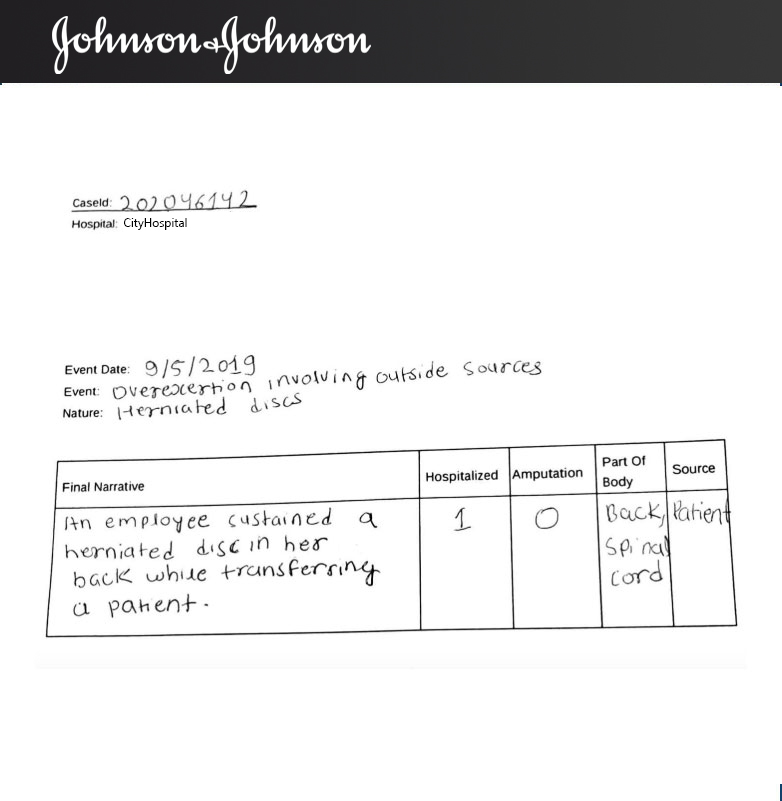 Johnson&Johnson
CaseId: 202046142
Hospital: CityHospital
Event Date: 9/5/2019
Event: Overexertion involving outside sources
Nature: Herniated discs
Final Narrative Hospitalized Amputation Part Of Body Source
An employee sustained a 1 0 Back, Patient
herniated disc in her Spinal
back while transferring cord
a patient.